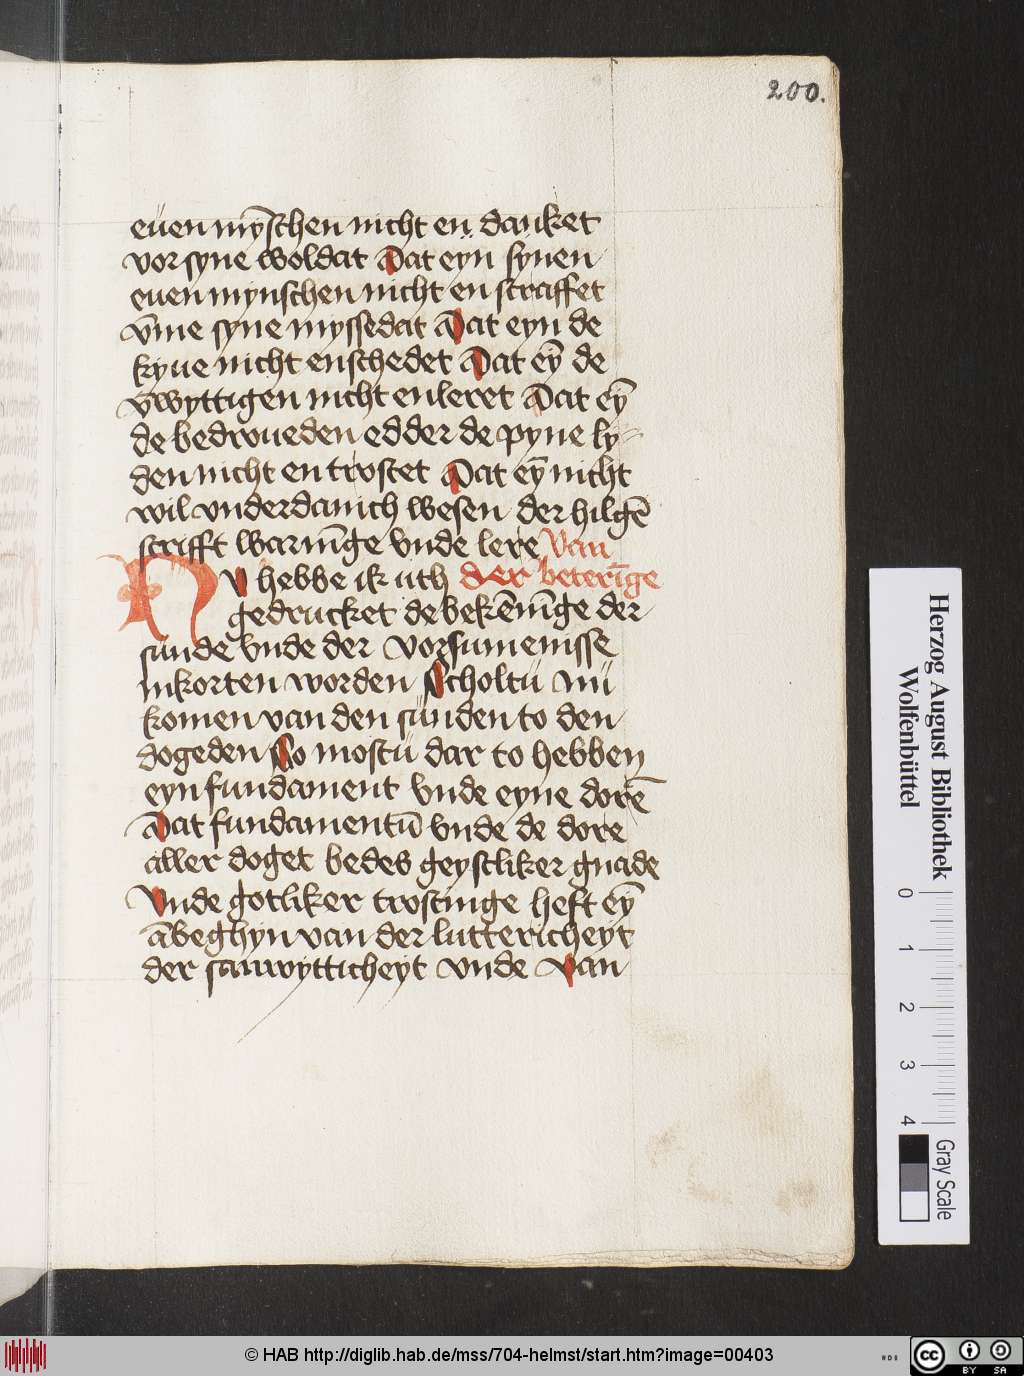 200.
euen mȳschen nicht en danket
vor syne woldat Dat eyn synen
euen mynschen nicht en straffet
v̄me syne myssedat Dat eyn de
kyue nicht enschedet Dat eȳ de
v̄wyttigen nicht enleret Dat eȳ
de bedroueden edder de pyne ly⸗
den nicht en trostet Dat eȳ nicht
wil vnderdanich wesen der hilgē
scrifft warnīge vnde lere Van
Nv hebbe ik uth der beterīge
gedrucket de bekēnīge der
sunde vnde der vorsumenisse
in korten worden Scholtu nu
komen van den sunden to den
dogeden So mostu dar to hebben
eyn fundament vnde eyne dorē
Dat fundamentū vnde de dore
aller doget bedes geystliker gnade
Vnde gotliker trostinge heft eȳ
ābeghyn van der lutticheyt
der sanwytticheyt vnde van
Herzog August Bibliothek
Wolfenbüttel
0 1 2 3 4
Gray Scale
© HAB http://diglib.hab.de/mss/704-helmst/start.htm?image=00403
HAB
cc BY SA